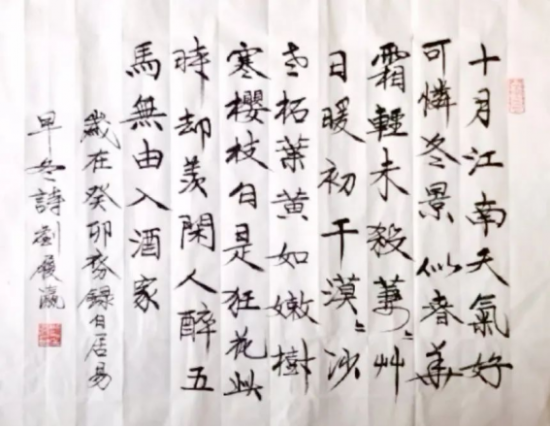 十月江南天氣好
可憐冬景似春華
霜輕未殺萋〻艸
日暖初干漠〻沙
老柘葉黃如嫩樹
寒櫻枝白是狂花此
時却羨閑人醉五
馬無由入酒家
歲在癸卯錄白居易
早冬詩劉展瀛